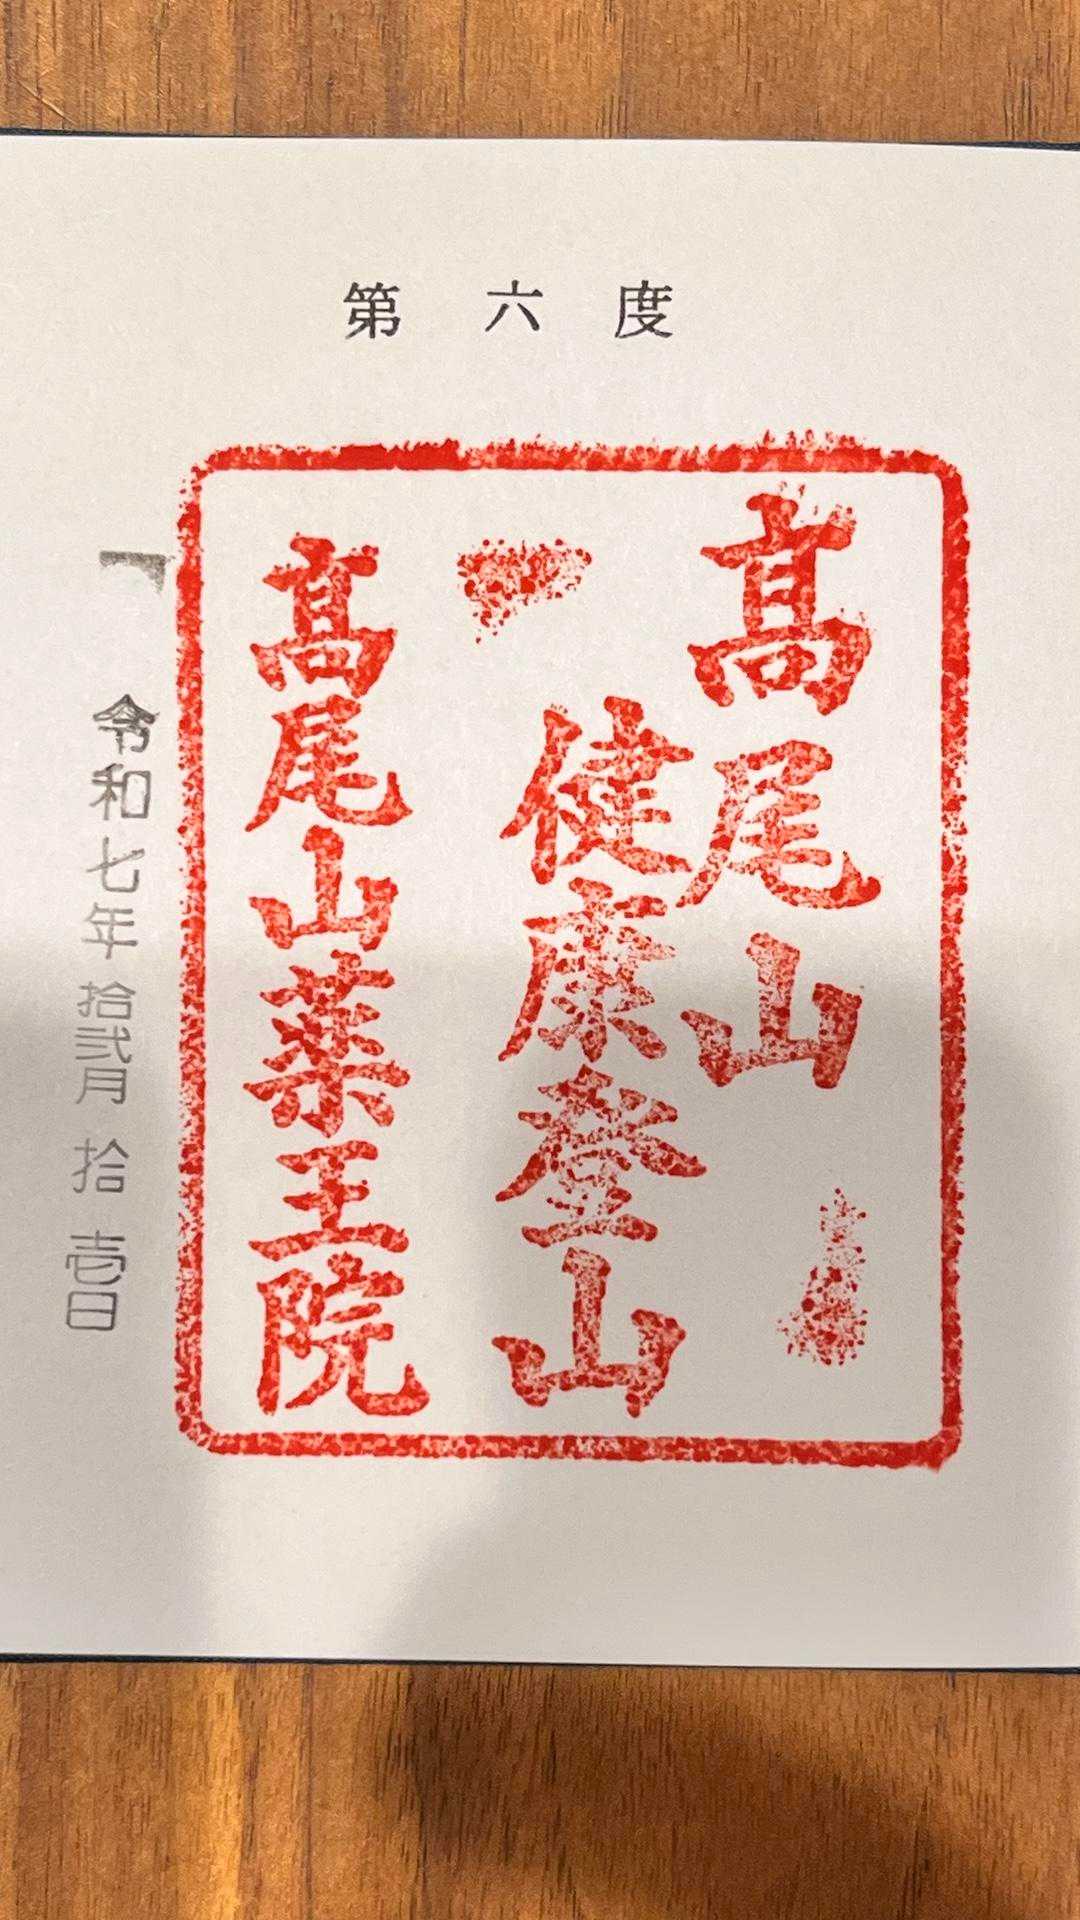 第六度
髙尾山
健康登山
髙尾山薬王院
令和七年拾弐月拾壱日